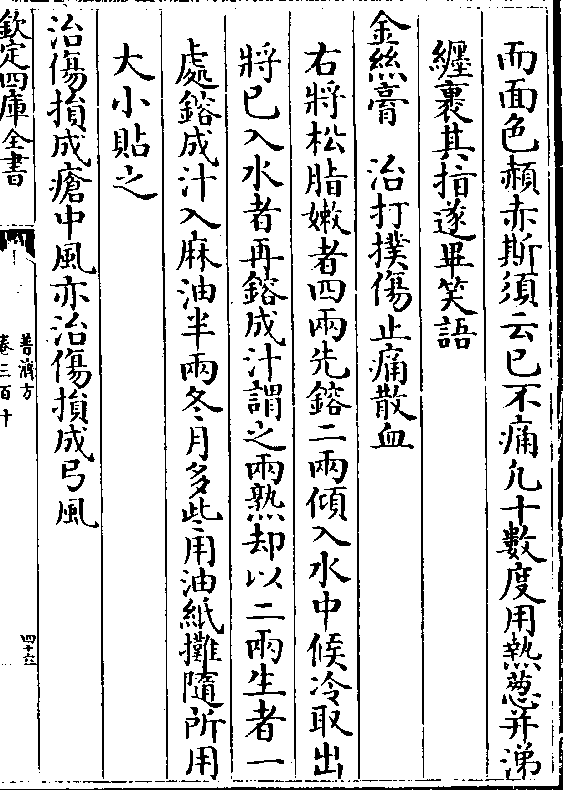 而面色頳赤斯須云已不痛凢十數度用熱葱并涕
纒裹其指遂畢笑語
金絲膏　治打撲傷止痛散血
右將松脂嫰者四兩先鎔二兩傾入水中候冷取出
將已入水者再鎔成汁謂之兩熟却以二兩生者一
處鎔成汁入麻油半兩冬月多些用油紙攤隨所用
大小貼之
治傷損成瘡中風亦治傷損成弓風
欽定四庫全書
普濟方
卷三百十
四十六